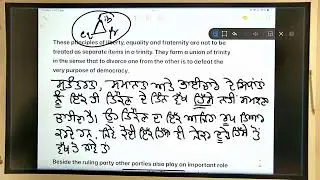 These principles of liberty, equality and fraternity are not to be
treated as separate items in a trinity. They form a union of trinity
in the sense that to divorce one from the other is to defeat the
very purpose of democracy.
ਸੁਤੰਤਰਤਾ, ਸਮਾਨਤਾ ਅਤੇ ਭਾਈਚਾਰੇ ਦੇ ਸਿਧਾਂਤਾਂ
ਨੂੰ ਇੱਕ ਹੀ ਤਿਕੋਣ ਦੇ ਤਿੰਨ ਵੱਖ ਹਿੱਸੇ ਨਹੀਂ ਸਮਝਣਾ
ਚਾਹੀਦਾ। ਉਹ ਤਿਕੋਣ ਦਾ ਇੱਕ ਅਜਿਹਾ ਰੂਪ ਧਾਰਨ
ਕਰਦੇ ਹਨ, ਜਿਵੇਂ ਕੋਈ ਇੱਕ ਹਿੱਸਾ ਵੀ ਜੇਕਰ ਦੂਜੇ ਹਿੱਸੇ ਤੋਂ
ਵੱਖ ਹੋ ਜਾਵੇ ਤਾਂ
Beside the ruling party other parties also play an important role